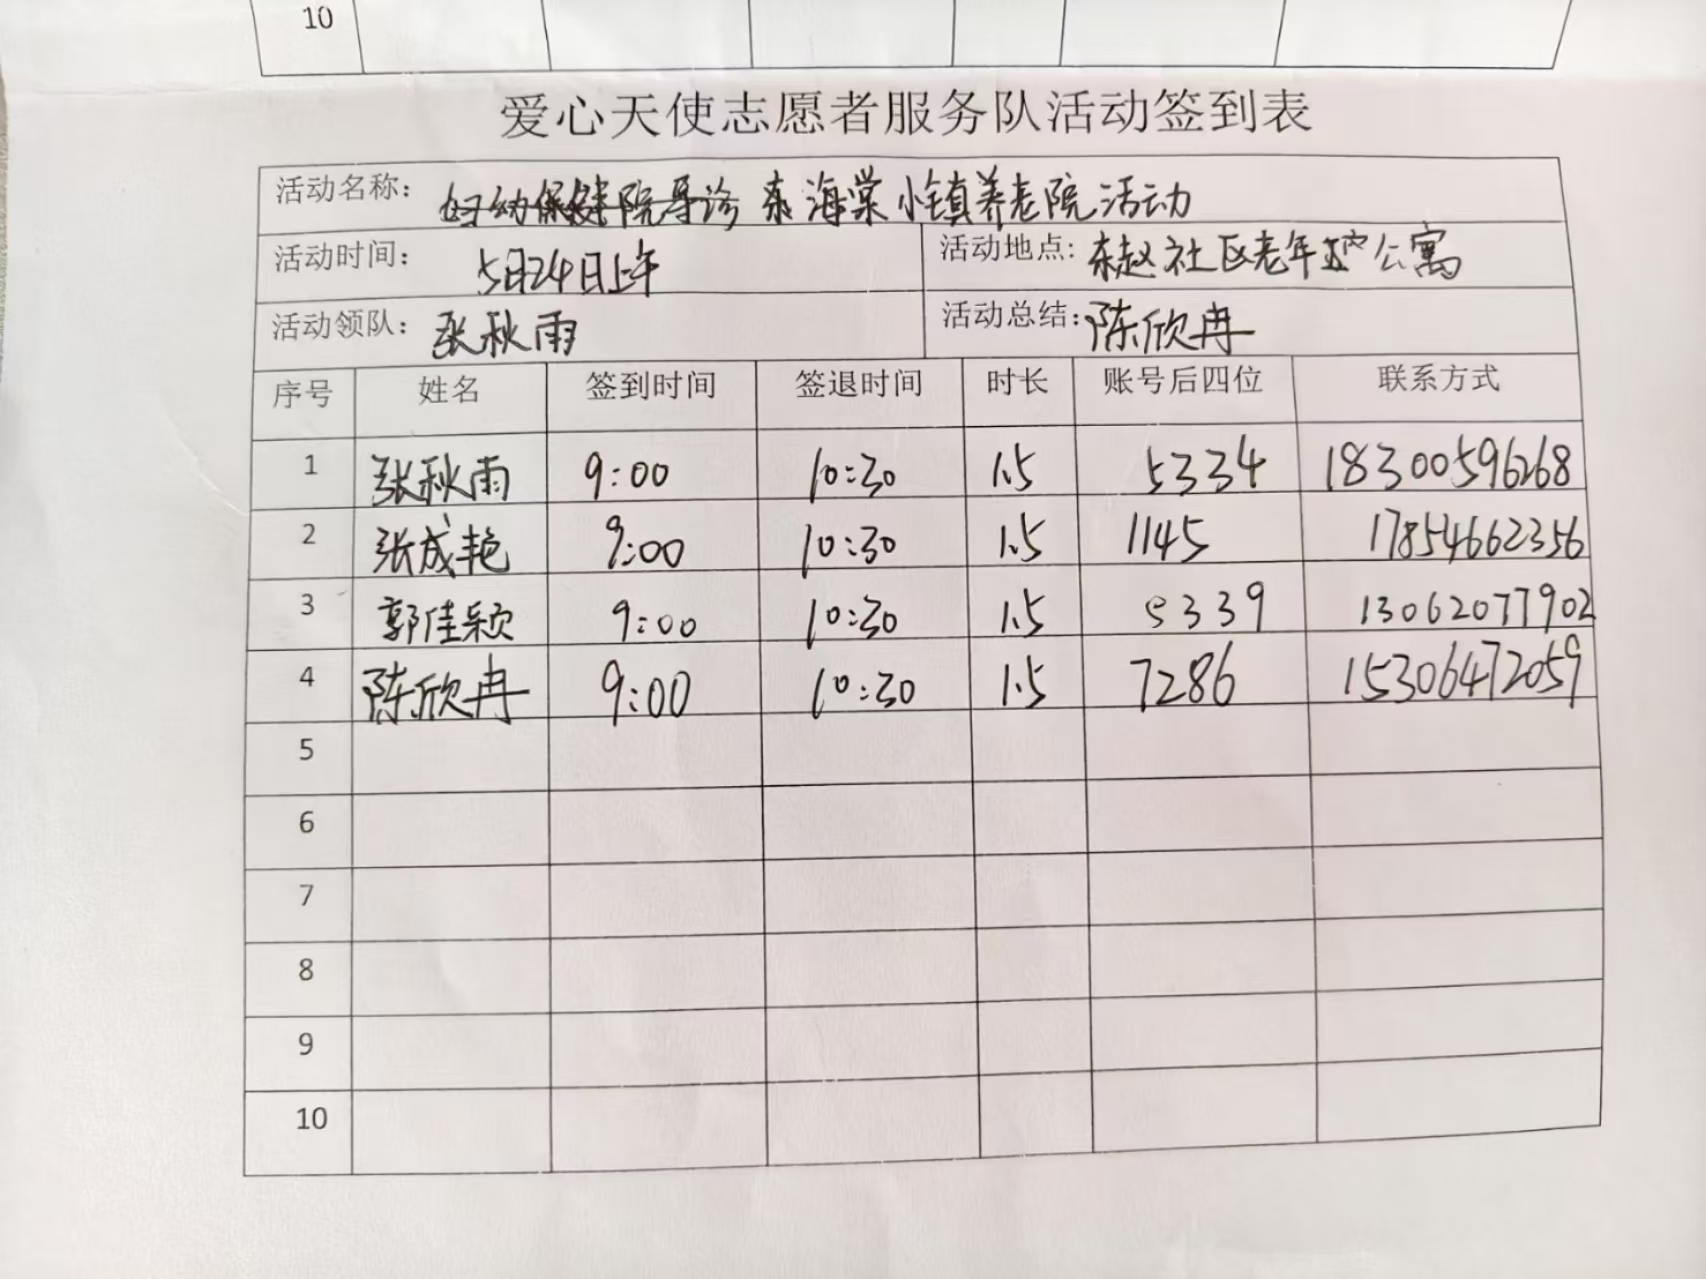 10
爱心天使志愿者服务队活动签到表
活动名称: 妇幼保健院导诊 海棠小镇养老院活动
活动时间: 5月24日上午 活动地点: 东赵社区老年公寓
活动领队: 张秋雨 活动总结: 陈欣冉
序号 姓名 签到时间 签退时间 时长 账号后四位 联系方式
1 张秋雨 9:00 10:30 1.5 5334 18300596268
2 张成艳 9:00 10:30 1.5 1145 17854662356
3 郭佳颖 9:00 10:30 1.5 5339 13062077902
4 陈欣冉 9:00 10:30 1.5 7286 15306472059
5
6
7
8
9
10